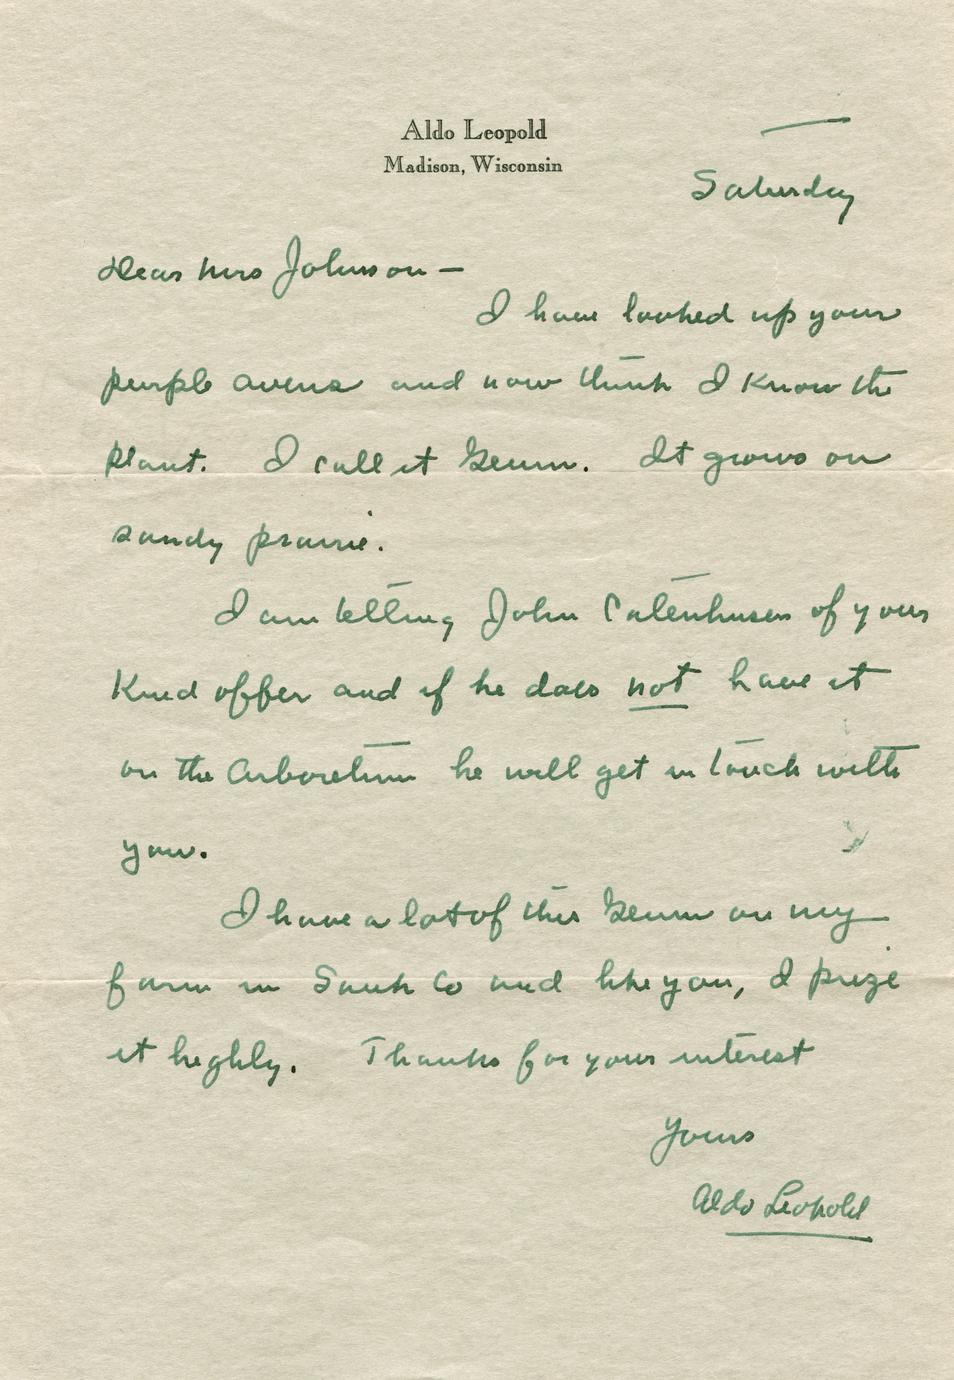 Aldo Leopold
Madison, Wisconsin
Saturday
Dear Mrs Johnson —
I have looked up your
purple avens and now think I know the
plant. I call it Geum. It grows on
sandy prairie.
I am telling John Catenhusen of your
kind offer and if he does not have it
on the Arboretum he will get in touch with
you.
I have a lot of this Geum on my
farm in Sauk Co and like you, I prize
it highly. Thanks for your interest
Yours
Aldo Leopold